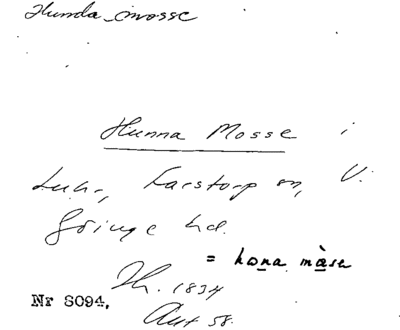 Hunda mosse
Hunna Mosse i
Luhr, Farstorp sn, V.
Göinge hd.
= hona måse
Th. 1834
Nr 8094,
Aut 58.